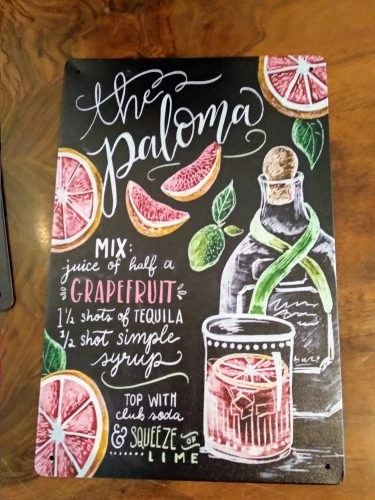 the
Paloma
MIX:
juice of half a
GRAPEFRUIT
1 1/2 shots of TEQUILA
1/2 shot simple
syrup
TOP WITH
club soda
& SQUEEZE OF
LIME